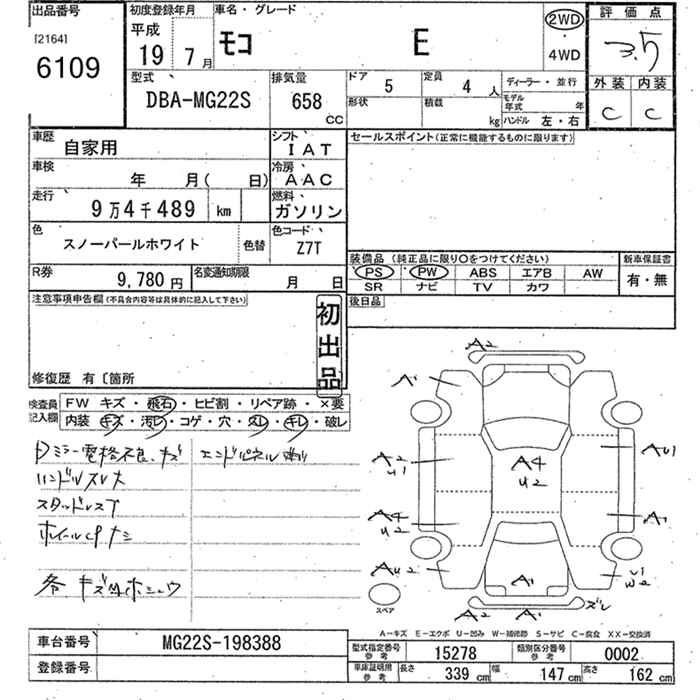 出品番号 初度登録年月 車名・グレード 2WD 評価点
[2164] 平成 モコ E ・ 3.5
6109 19 7月 4WD
型式 排気量 ドア 5 定員 4人 ディーラー・並行 外装 内装
DBA-MG22S 658 cc 形状 積載 kg モデル年式 年 C C
ハンドル 左・右
車歴 自家用 シフト IAT セールスポイント(正常に機能するものに限ります)
車検 年 月( 日) 冷房 AAC
走行 9万4千489 km 燃料 ガソリン
色 スノーパールホワイト 色替 色コード Z7T
装備品(純正品に限り○をつけてください) 新車保証書
R券 9,780円 名変通知期限 月 日 PS PW ABS エアB AW 有・無
SR ナビ TV カワ
注意事項申告欄(不具合内容等は具体的に記入して下さい) 初出品 後日品
修復歴 有〔箇所
検査員記入欄 FW キズ・飛石・ヒビ割・リペア跡・×要
内装 キズ・汚レ・コゲ・穴・スレ・キレ・破レ
Dミラー電格不良、キズ
ハンドルスレ大
スタッドレス
ホイールCPナシ
A2
A1
A2
U1
A4
U2
AU1
A4
U2
A1
AU2
A1
U1
W2
スペア
A2 A1 ズレ
A-キズ E-エクボ U-凹み W-補修跡 S-サビ C-腐食 XX-交換済
車台番号 MG22S-198388 型式指定番号 参考 15278 類別区分番号 参考 0002
登録番号 車庫証明用 参考 長さ 339 cm 幅 147 cm 高さ 162 cm